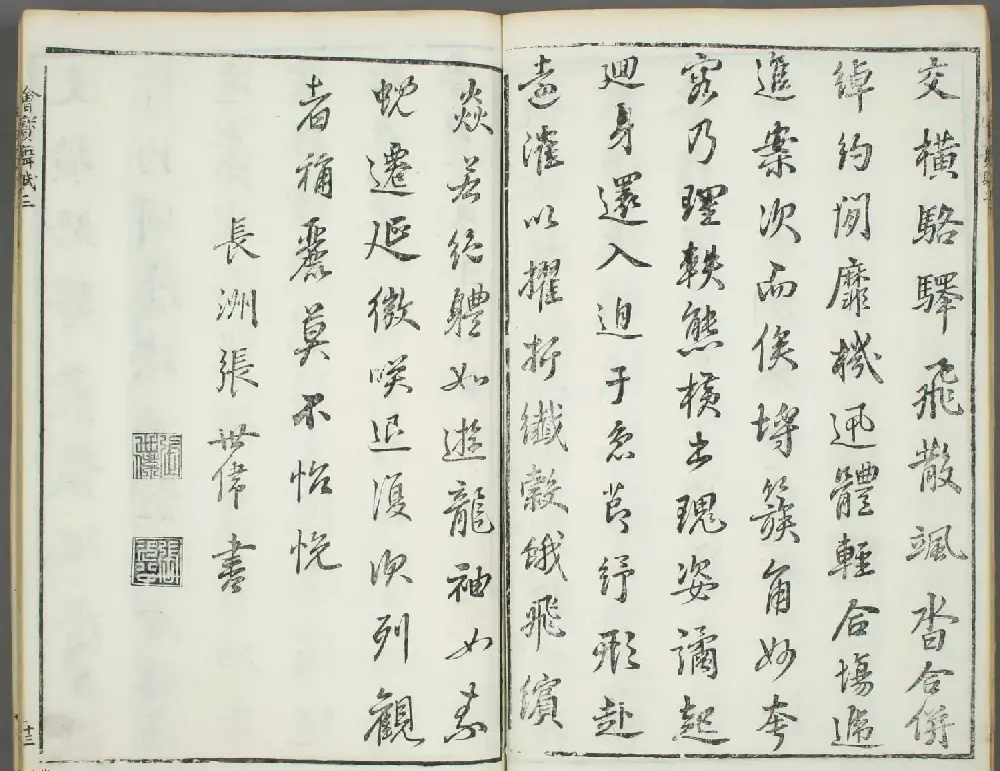 交橫駱驛飛散颯沓合併
綽約閒靡機迅體輕合場遞
進案次而俟埒簇角妙夸
容乃理軼態橫出瑰姿譎起
迴身還入迫于急節紆形赴
遠漼以擢折纖縠蛾飛繽
焱若絕體如遊龍袖如素
蜺遷延微咲退復次列觀
者稱麗莫不怡悅
長洲張世偉書
十三